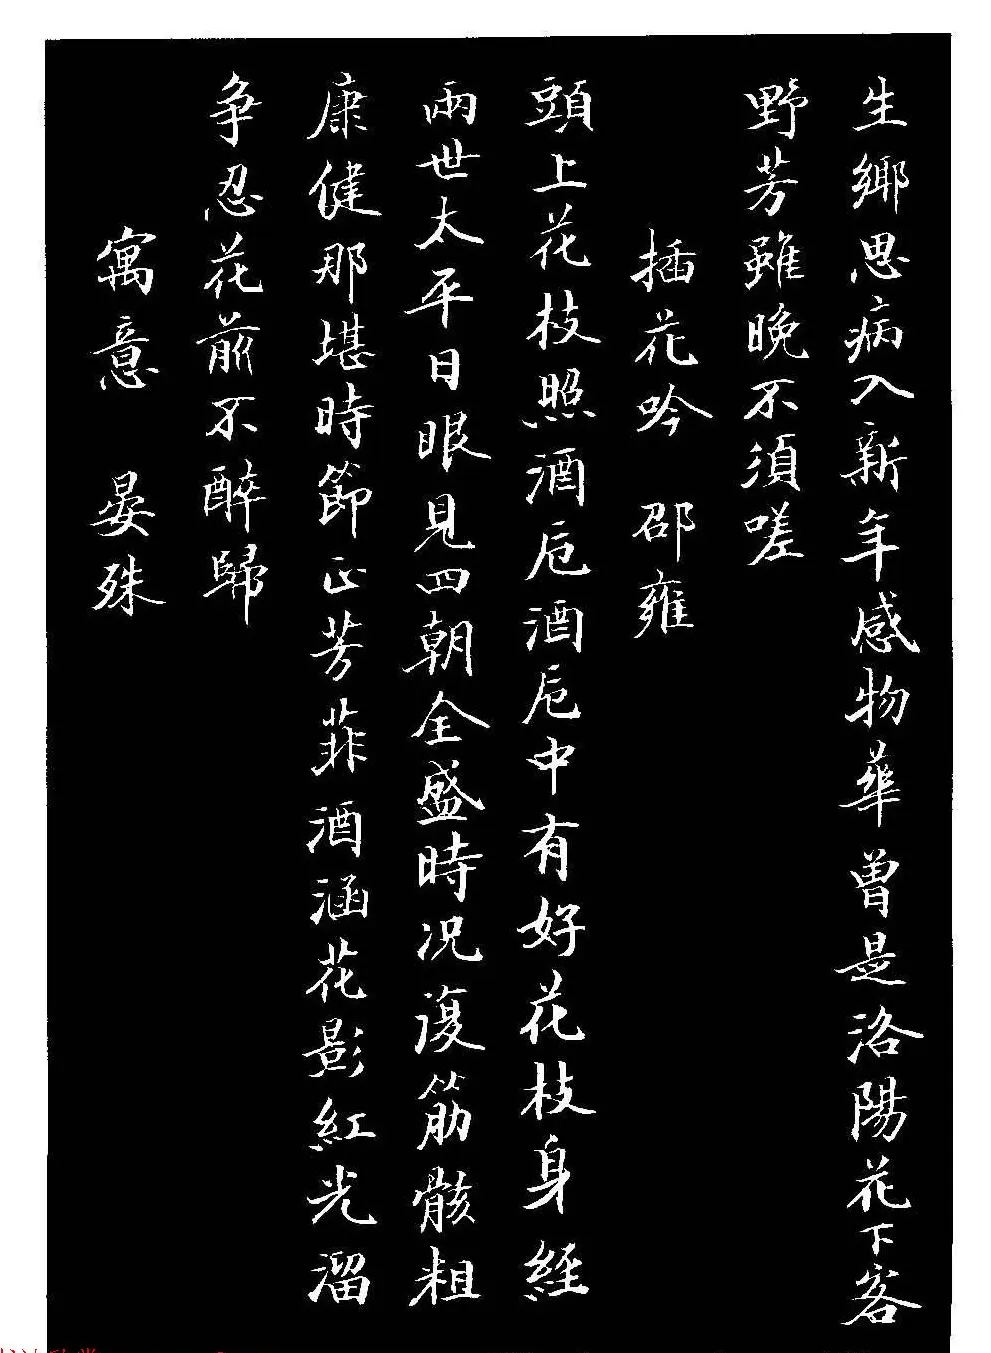 生鄉思病入新年感物華曾是洛陽花下客
野芳雖晚不須嗟
插花吟 邵雍
頭上花枝照酒卮酒卮中有好花枝身經
兩世太平日眼見四朝全盛時況復筋骸粗
康健那堪時節正芳菲酒涵花影紅光溜
争忍花前不醉歸
寓意 晏殊